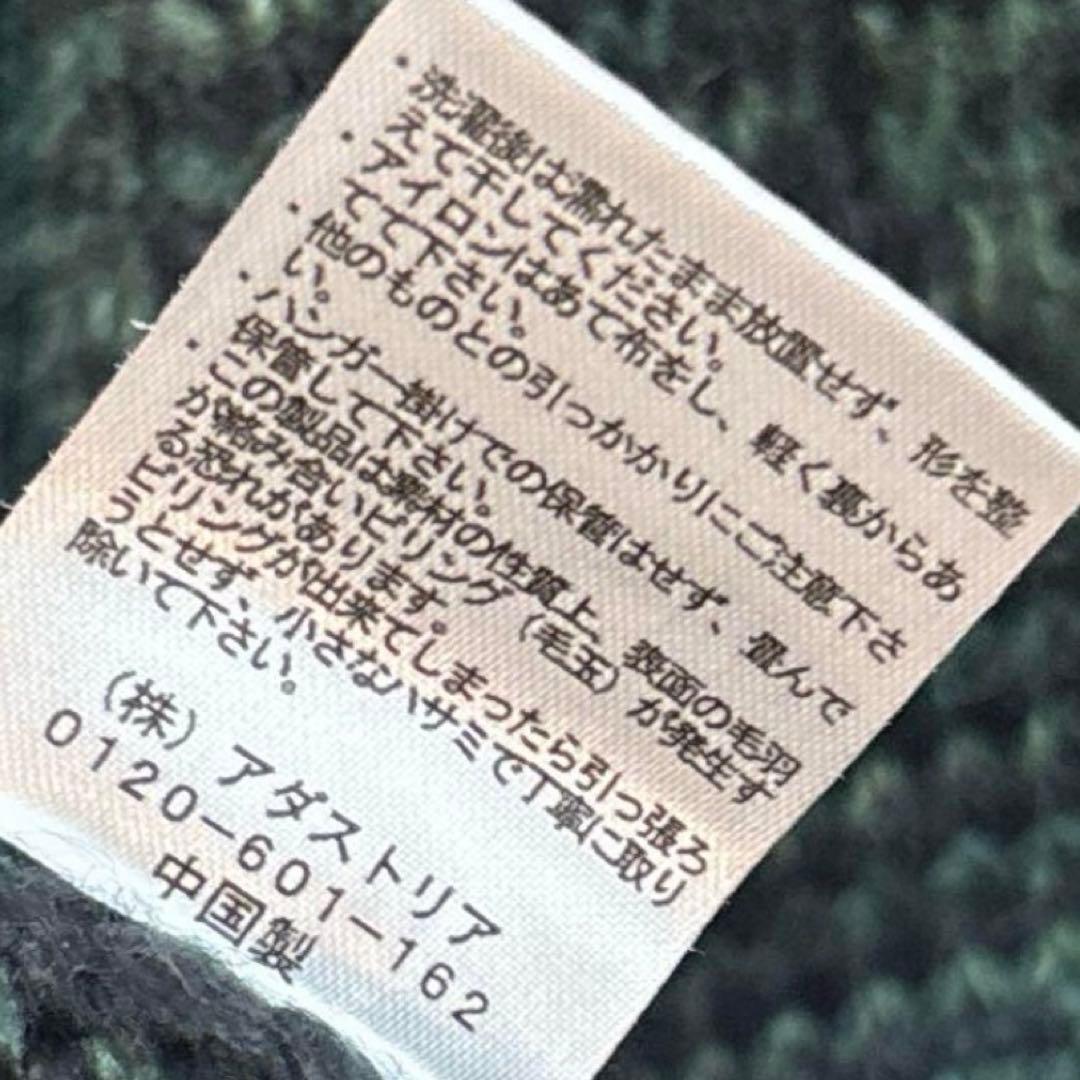 ・洗濯後はお濡れたまま放置せず、形を整
えて干してください。
・アイロンはあて布をし、軽く裏からあ
てて下さい。
・他のものとの引っかかりにご注意下さ
い。
・ハンガー掛けでの保管はせず、畳んで
保管して下さい。
・この製品は素材の性質上、表面の毛羽
が絡み合いピリング（毛玉）が発生す
る恐れがあります。
ピリングが出来てしまったら引っ張ろ
うとせず、小さなハサミで丁寧に取り
除いて下さい。
（株）アダストリア
0120-601-162
中国製